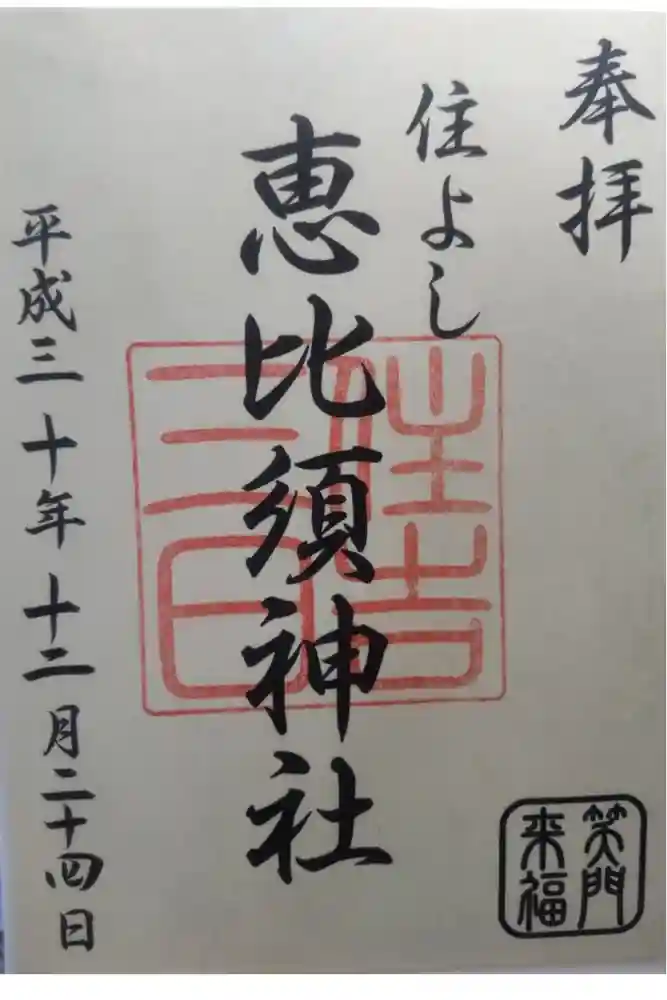 奉拝
住よし
恵比須神社
平成三十年十二月二十四日
住吉
三日
笑門
来福